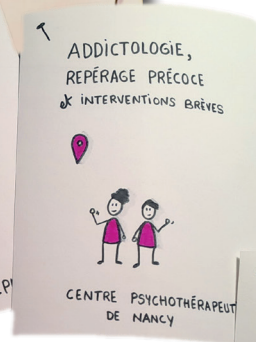 ADDICTOLOGIE,
REPÉRAGE PRÉCOCE
& INTERVENTIONS BRÈVES
CENTRE PSYCHOTHÉRAPEUT
DE NANCY